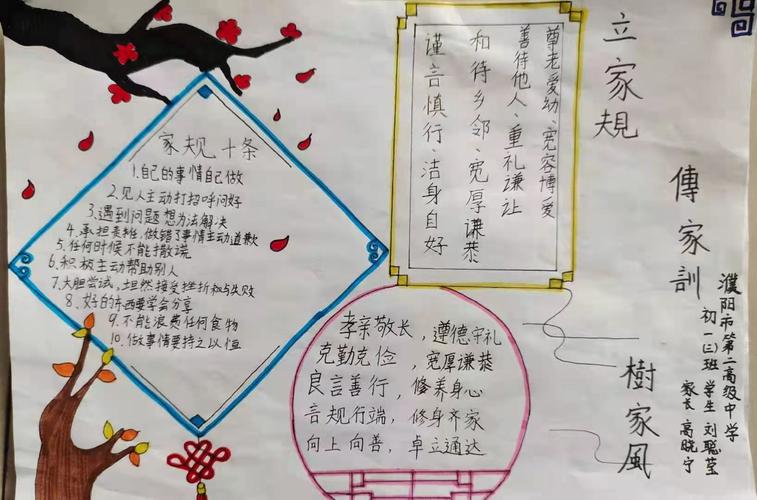 立家規
傳家訓
樹家風
家规十条
1.自己的事情自己做
2.见人主动打招呼问好
3.遇到问题想办法解决
4.承担责任,做错了事情主动道歉
5.任何时候不能撒谎
6.积极主动帮助别人
7.大胆尝试,坦然接受挫折和失败
8.好的东西要学会分享
9.不能浪费任何食物
10.做事情要持之以恒
尊老爱幼、宽容博爱
善待他人、重礼谦让
和待乡邻、宽厚谦恭
谨言慎行、洁身自好
孝亲敬长，遵德守礼
克勤克俭，宽厚谦恭
良言善行，修养身心
言规行端，修身齐家
向上向善，卓立通达
濮阳市第二高级中学
初一(三)班 学生 刘聪莹
家长 高晓宁